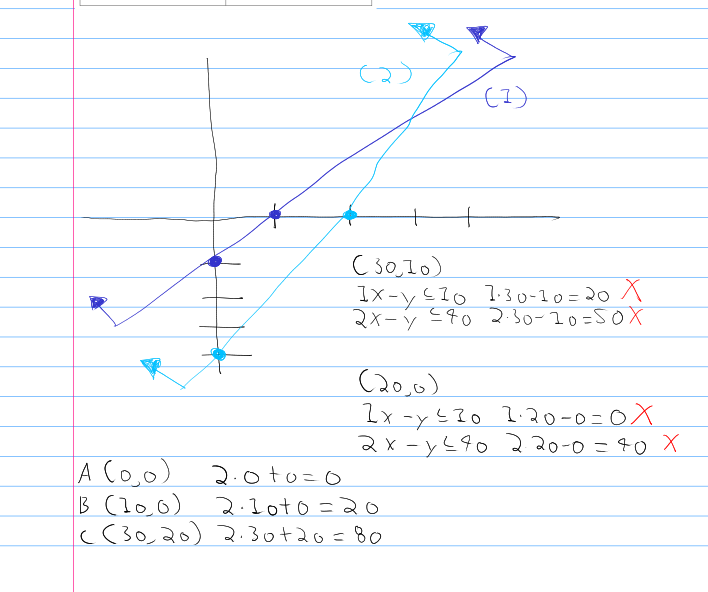 (2)
(1)
(30,10)
1x-y≤10 1·30-10=20 X
2x-y≤40 2·30-10=50 X
(20,0)
1x-y≤10 1·20-0=0 X
2x-y≤40 2·20-0=40 X
A (0,0) 2·0+0=0
B (10,0) 2·10+0=20
C (30,20) 2·30+20=80